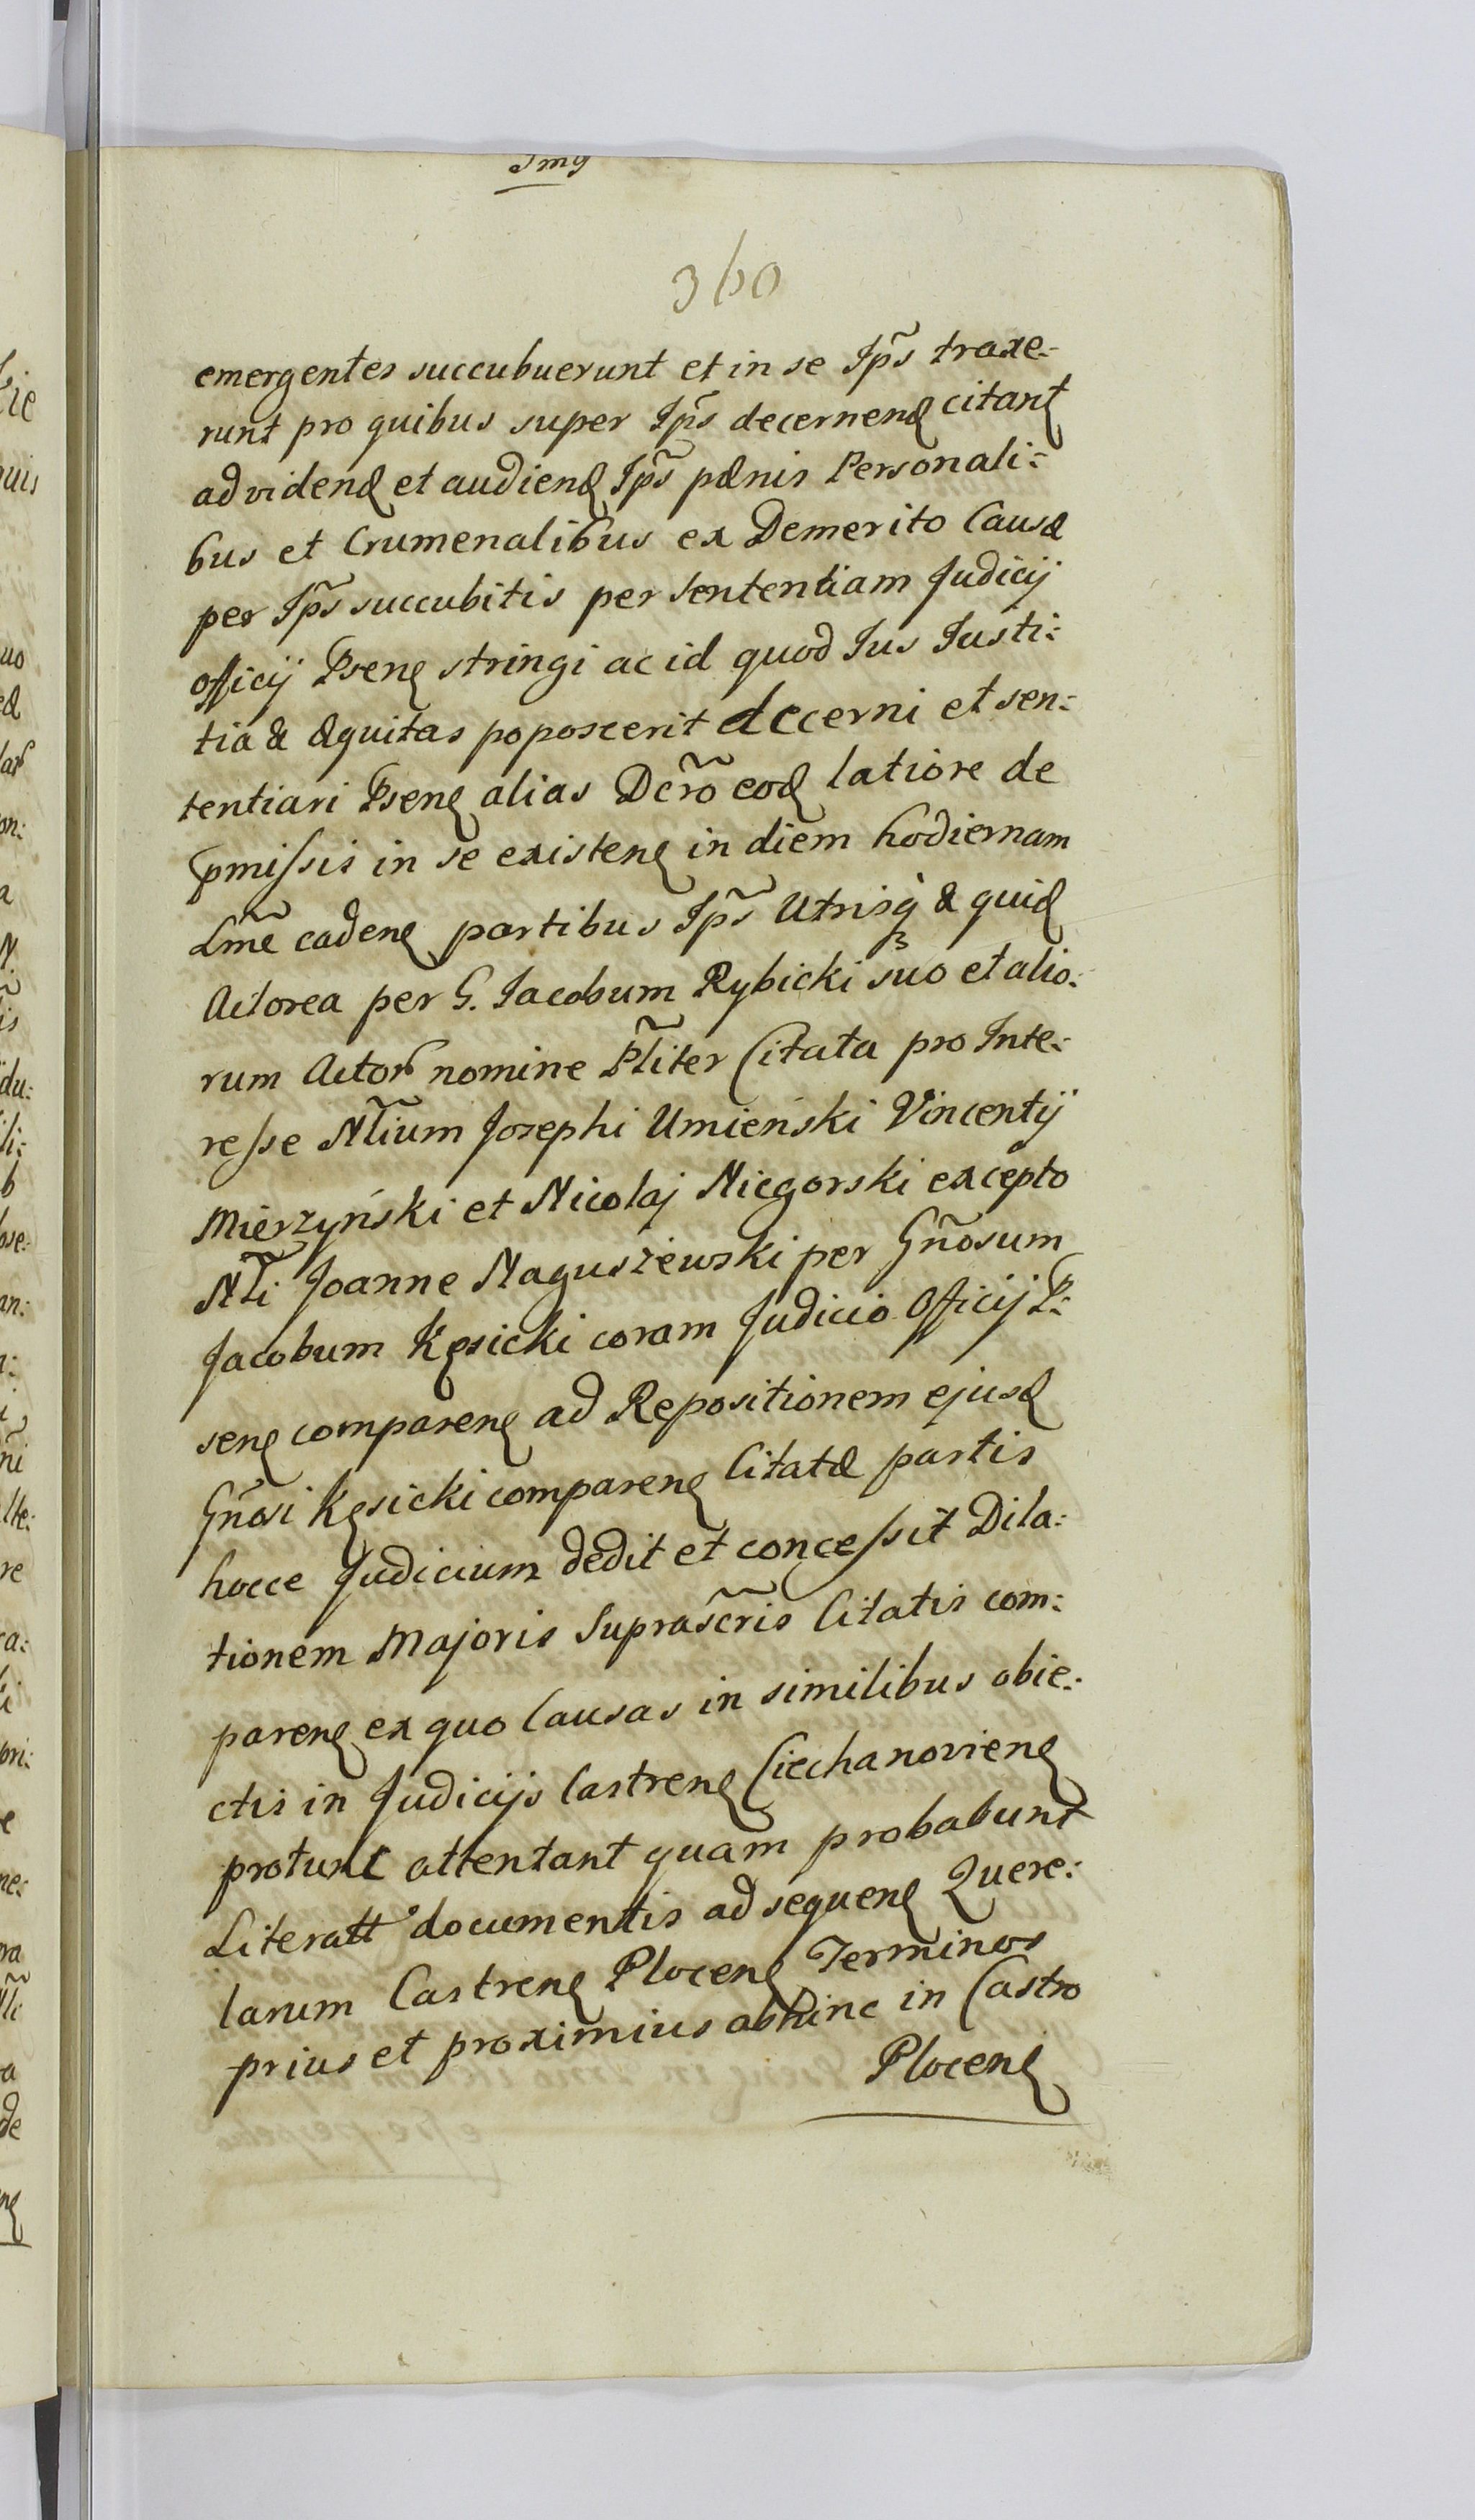 360
emergentes succubuerunt et in se Ip̃s traxe:
runt pro quibus super Ip̃s decernenꝺ citant
ad videnꝺ et audienꝺ Ip̃s pænis Personali:
bus et Crumenalibus ex Demerito Causæ
per Ip̃s succubitis per sententiam Judicij
officij Pseñ stringi ac id quod Jus Justi:
tia & æquitas poposcerit decerni et sen:
tentiari Pseñ alias Dcr̃o eoꝺ latiore de
pmissis in se existeñ in diem hodiernam
Lmẽ cadeñ partibus Ip̃s Utrisq̀ & quiꝺ
Actorea per G. Jacobum Rybicki suo et alio:
rum Actor nomine Pl̃iter Citata pro Inte:
resse Nl̃ium Josephi Umieński Vincentij
Mierzyński et Nicolaj Niegorski excepto
Nl̃i Joanne Naguszewski per Gñosum
Jacobum Kęsicki coram Judicio Officij P:
señ compareñ ad Repositionem ejusꝺ
Gñosi Kęsicki compareñ Citatæ partis
hocce Judicium dedit et concessit Dila:
tionem Majoris Suprascr̃is Citatis com:
pareñ ex quo Causas in similibus obie:
ctis in Judicijs Castreñ Ciechanovieñ
protunc attentant quam probabunt
Literatt documentis ad sequeñ Quere:
larum Castreñ Ploceñ Terminos
prius et proximius abhinc in Castro
Ploceñ